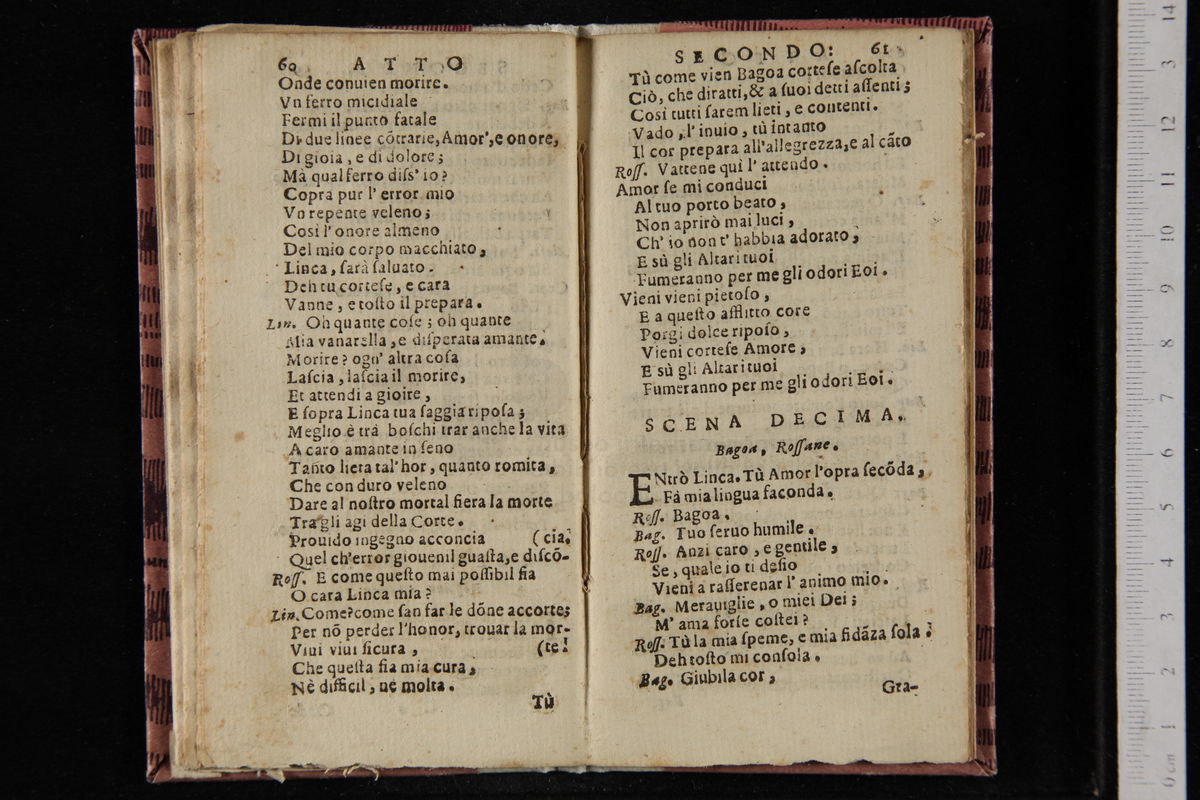 60 ATTO
Onde conuien morire.
Vn ferro micidiale
Fermi il punto fatale
Di due linee cõtrarie, Amor', e onore,
Di gioia, e di dolore;
Mà qual ferro diss' io?
Copra pur l' error mio
Vn repente veleno;
Cosi l' onore almeno
Del mio corpo macchiato,
Linca, sarà saluato.
Deh tu cortese, e cara
Vanne, e tosto il prepara.
Lin. Oh quante cose; oh quante
Mia vanarella, e disperata amante.
Morire? ogn' altra cosa
Lascia, lascia il morire,
Et attendi a gioire,
E sopra Linca tua saggia riposa;
Meglio è trà boschi trar anche la vita
A caro amante in seno
Tanto lieta tal'hor, quanto romita,
Che con duro veleno
Dare al nostro mortal fiera la morte
Tra gli agi della Corte.
Prouido ingegno acconcia (cia.
Quel ch'error giouenil guasta, e discõ-
Ross. E come questo mai possibil fia
O cara Linca mia?
Lin. Come? come san far le dõne accorte;
Per nõ perder l'honor, trouar la mor-
Viui viui sicura, (te!
Che questa fia mia cura,
Nè difficil, ne molta.
Tù
SECONDO: 61
Tù come vien Bagoa cortese ascolta
Ciò, che diratti, & a suoi detti assenti;
Cosi tutti sarem lieti, e contenti.
Vado, l' inuio, tù intanto
Il cor prepara all'allegrezza, e al cãto
Ross. Vattene quì l' attendo.
Amor se mi conduci
Al tuo porto beato,
Non aprirò mai luci,
Ch' io non t' habbia adorato,
E sù gli Altari tuoi
Fumeranno per me gli odori Eoi.
Vieni vieni pietoso,
E a questo afflitto core
Porgi dolce riposo,
Vieni cortese Amore,
E sù gli Altari tuoi
Fumeranno per me gli odori Eoi.
SCENA DECIMA.
Bagoa, Rossane.
ENtrò Linca. Tù Amor l'opra secõda,
Fà mia lingua faconda.
Ross. Bagoa.
Bag. Tuo seruo humile.
Ross. Anzi caro, e gentile,
Se, quale io ti desio
Vieni a rasserenar l' animo mio.
Bag. Merauiglie, o miei Dei;
M' ama forse costei?
Ross. Tù la mia speme, e mia fidãza sola.
Deh tosto mi consola.
Bag. Giubila cor,
Gra-
14
13
12
11
10
9
8
7
6
5
4
3
2
1
0 cm